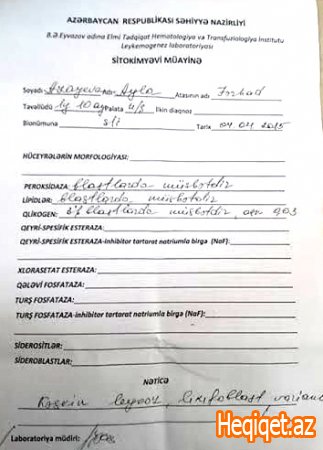 AZƏRBAYCAN RESPUBLİKASI SƏHİYYƏ NAZİRLİYİ
B.Ə.Eyvazov adına Elmi Tədqiqat Hematologiya və Transfuziologiya İnstitutu
Leykemogenez laboratoriyası
SİTOKİMYƏVİ MÜAYİNƏ
Soyadı Adı Ayla Atasının adı Fərhad
Təvəllüdü 10 ay Palata İlkin diaqnoz
Bionümunə s/i Tarix 04.04.2015
HÜCEYRƏLƏRİN MORFOLOGİYASI:
PEROKSİDAZA: blastlarda müsbətdir
LİPİDLƏR: blastlarda müsbətdir
QLİKOGEN: blastlarda müsbətdir, 0,03
QEYRİ-SPESİFİK ESTERAZA:
QEYRİ-SPESİFİK ESTERAZA-inhibitor tartarat natriumla birgə (NaF):
XLORASETAT ESTERAZA:
QƏLƏVİ FOSFATAZA:
TURŞ FOSFATAZA:
TURŞ FOSFATAZA-inhibitor tartarat natriumla birgə (NaF):
SİDEROSİTLƏR:
SİDEROBLASTLAR:
NƏTİCƏ
Kəskin leykoz, variantı
Laboratoriya müdiri:
Heqiqet.az